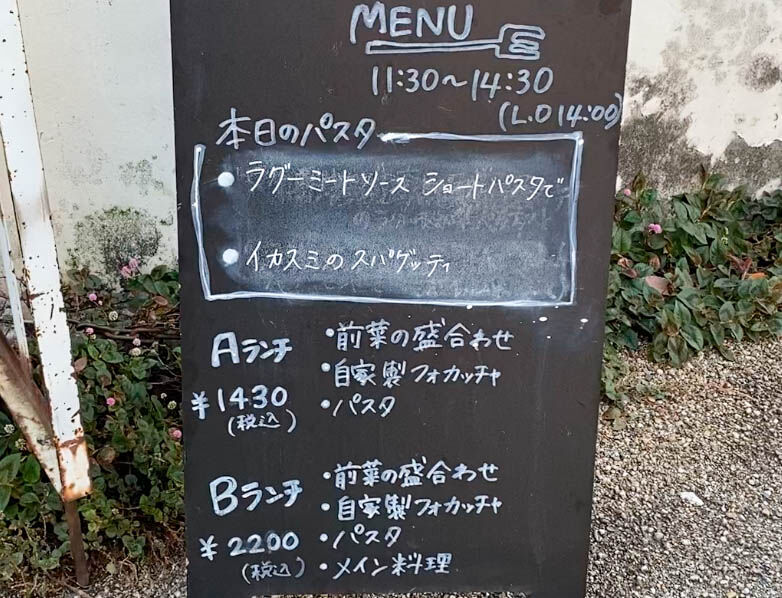 MENU
11:30〜14:30
(L.O 14:00)
本日のパスタ
• ラグーミートソース ショートパスタで
• イカスミのスパゲッティ
Aランチ
¥1430
(税込)
・前菜の盛合わせ
・自家製フォカッチャ
・パスタ
Bランチ
¥2200
(税込)
・前菜の盛合わせ
・自家製フォカッチャ
・パスタ
・メイン料理